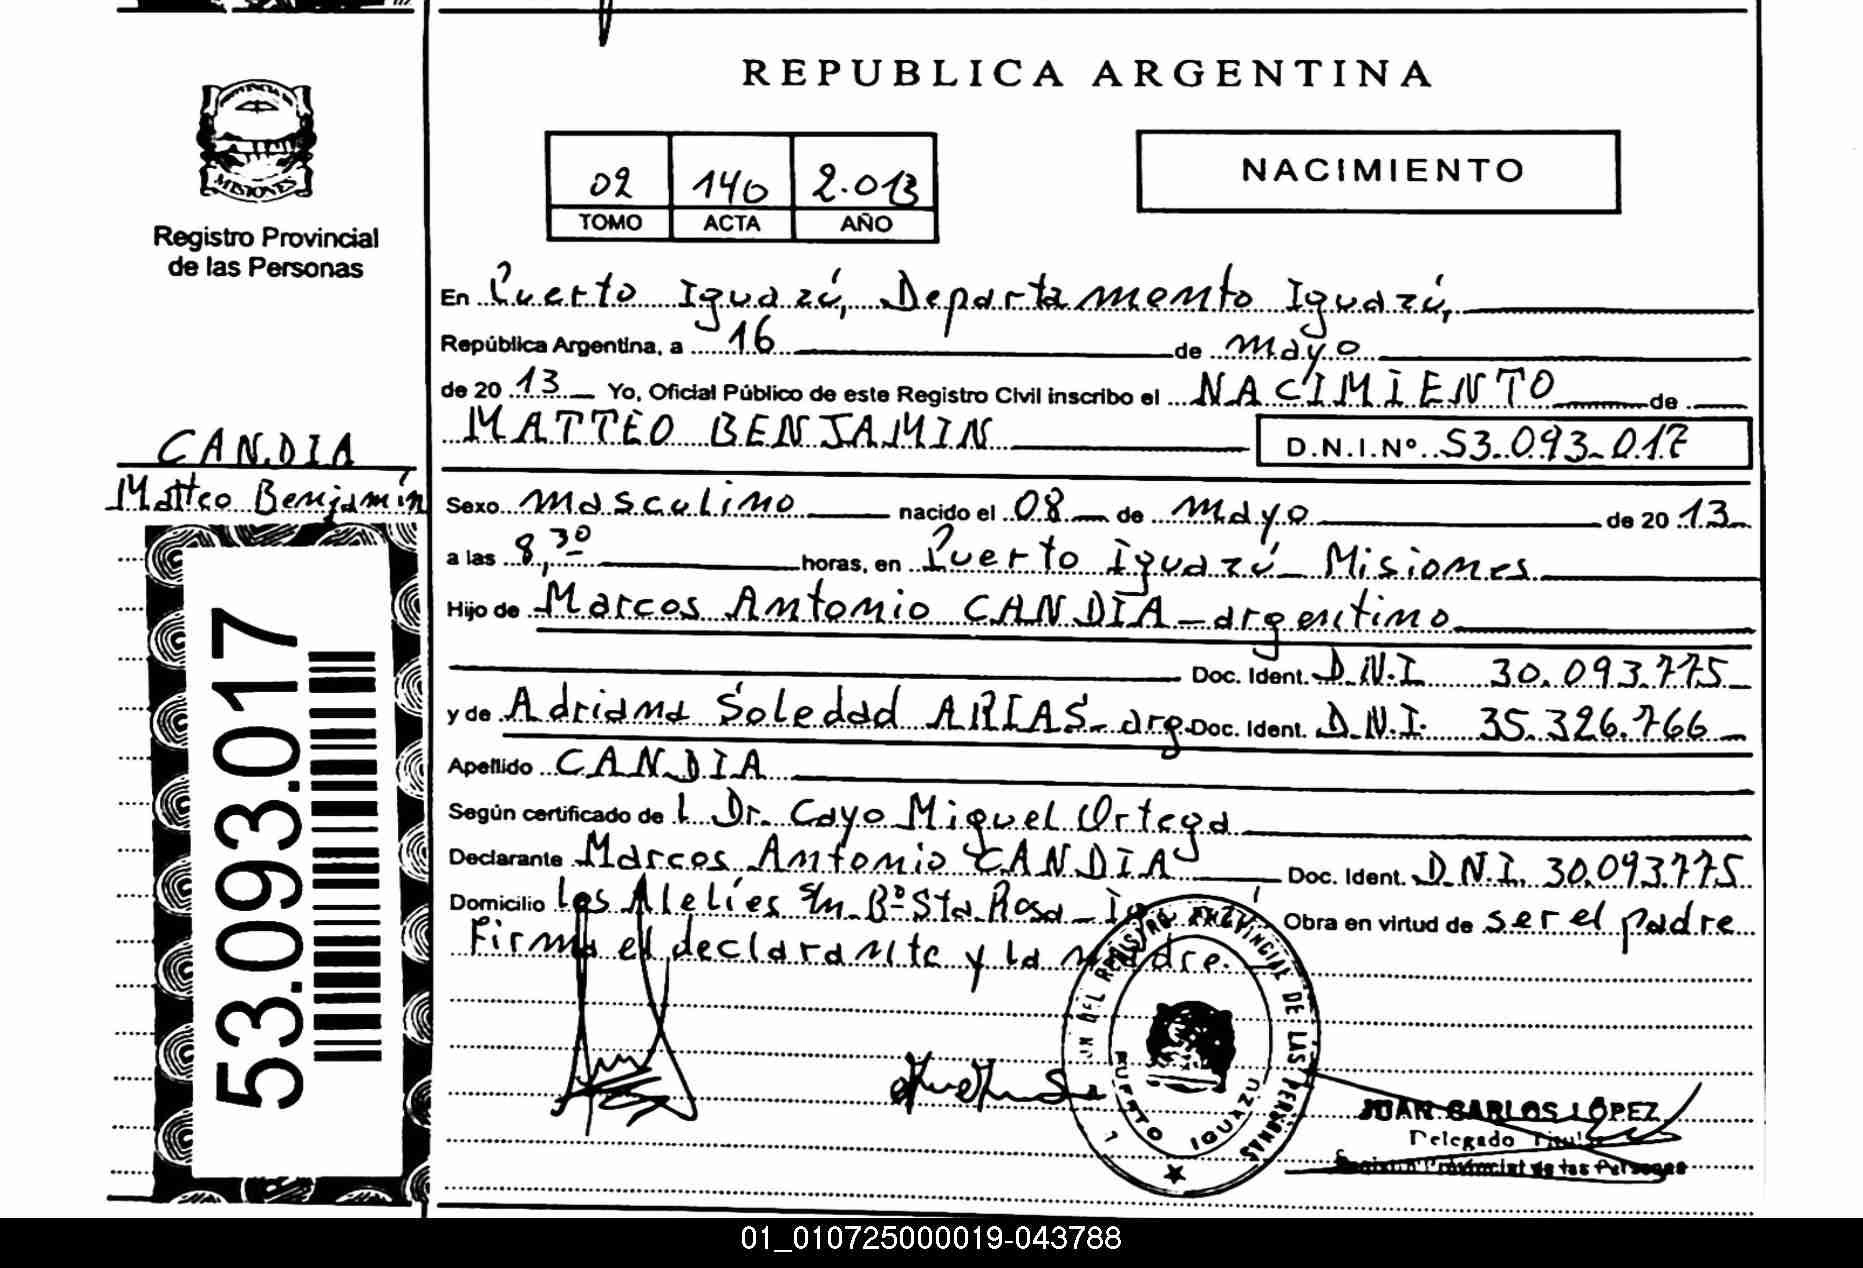 REPUBLICA ARGENTINA
PROVINCIA DE
MISIONES
Registro Provincial
de las Personas
02 140 2.013
TOMO ACTA AÑO
NACIMIENTO
En Puerto Iguazú, Departamento Iguazú,
República Argentina, a 16 de mayo
de 20 13 Yo, Oficial Público de este Registro Civil inscribo el NACIMIENTO de
MATTEO BENJAMIN D.N.I.Nº 53.093.017
CANDIA
Matteo Benjamín
53.093.017
Sexo masculino nacido el 08 de mayo de 20 13
a las 8,30 horas, en Puerto Iguazú Misiones
Hijo de Marcos Antonio CANDIA argentino
Doc. Ident. D.N.I 30.093.775
y de Adriana Soledad ARIAS arg Doc. Ident. D.N.I. 35.326.766
Apellido CANDIA
Según certificado de l Dr. Cayo Miguel Ortega
Declarante Marcos Antonio CANDIA Doc. Ident. D.N.I. 30.093.775
Domicilio Los Alelíes s/n Bº Sta. Rosa Obra en virtud de ser el padre
Firma el declarante y la madre.
DEL REGISTRO PROVINCIAL DE LAS PERSONAS
PUERTO IGUAZU
JUAN CARLOS LÓPEZ
Delegado Titular
Registro Provincial de las Personas
01_010725000019-043788